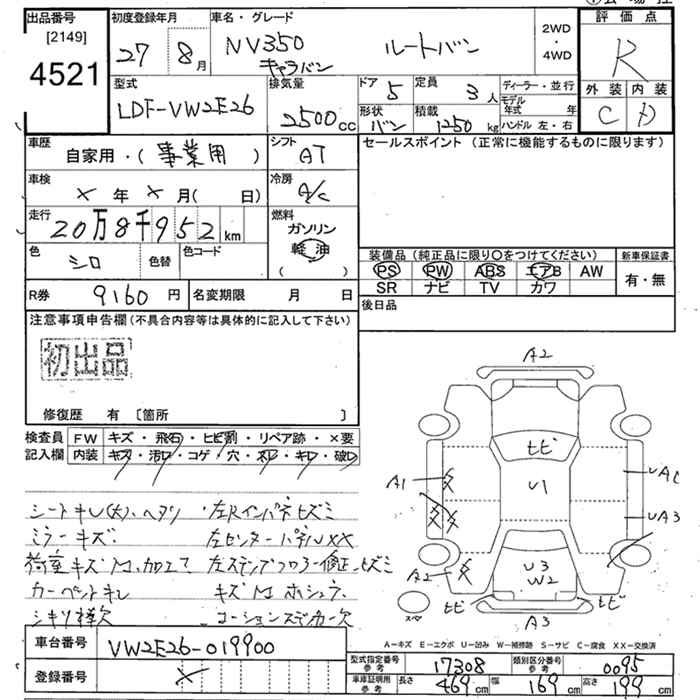 出品番号
[2149]
4521
初度登録年月
27 8月
車名・グレード
NV350 キャラバン
ルートバン
2WD
・
4WD
評価点
R
外装 内装
C D
型式
LDF-VW2E26
排気量
2500cc
ドア 5
定員 3人
形状 バン
積載 1250kg
ディーラー・並行
モデル年式 年
ハンドル 左・右
車歴
自家用・(事業用)
シフト
AT
セールスポイント (正常に機能するものに限ります)
車検
× 年 × 月( 日)
冷房
A/C
走行
20万8千952km
燃料
ガソリン
軽油
( )
色
シロ
色替
色コード
装備品 (純正品に限り○をつけてください)
PS PW ABS エアB AW
SR ナビ TV カワ
新車保証書
有・無
R券 9160円
名変期限 月 日
後日品
注意事項申告欄 (不具合内容等は具体的に記入して下さい)
初出品
修復歴 有 〔箇所 〕
検査員記入欄
FW キズ・飛石・ヒビ割・リペア跡・×要
内装 キズ・汚れ・コゲ・穴・スレ・キレ・破れ
シートキレ(大)、ヘタリ
ミラーキズ
荷室キズM、加工て
カーペットキレ
シキリ棒欠
左RインパネヒズミM
左センターパネルXX
左ステップフロアー修正、ヒズミ
キズM ホシュウ
コーションステッカー欠
A2
ヒビ
A1
U1
UA1
UA3
A2
U3
W2
ヒビ
ヒビ
スペア
A3
A-キズ E-エクボ U-凹み W-補修跡 S-サビ C-腐食 XX-交換済
車台番号
VW2E26-019900
登録番号
×
型式指定番号 参考 17308
類別区分番号 参考 0095
車庫証明用 参考 長さ 469cm 幅 169cm 高さ 199cm